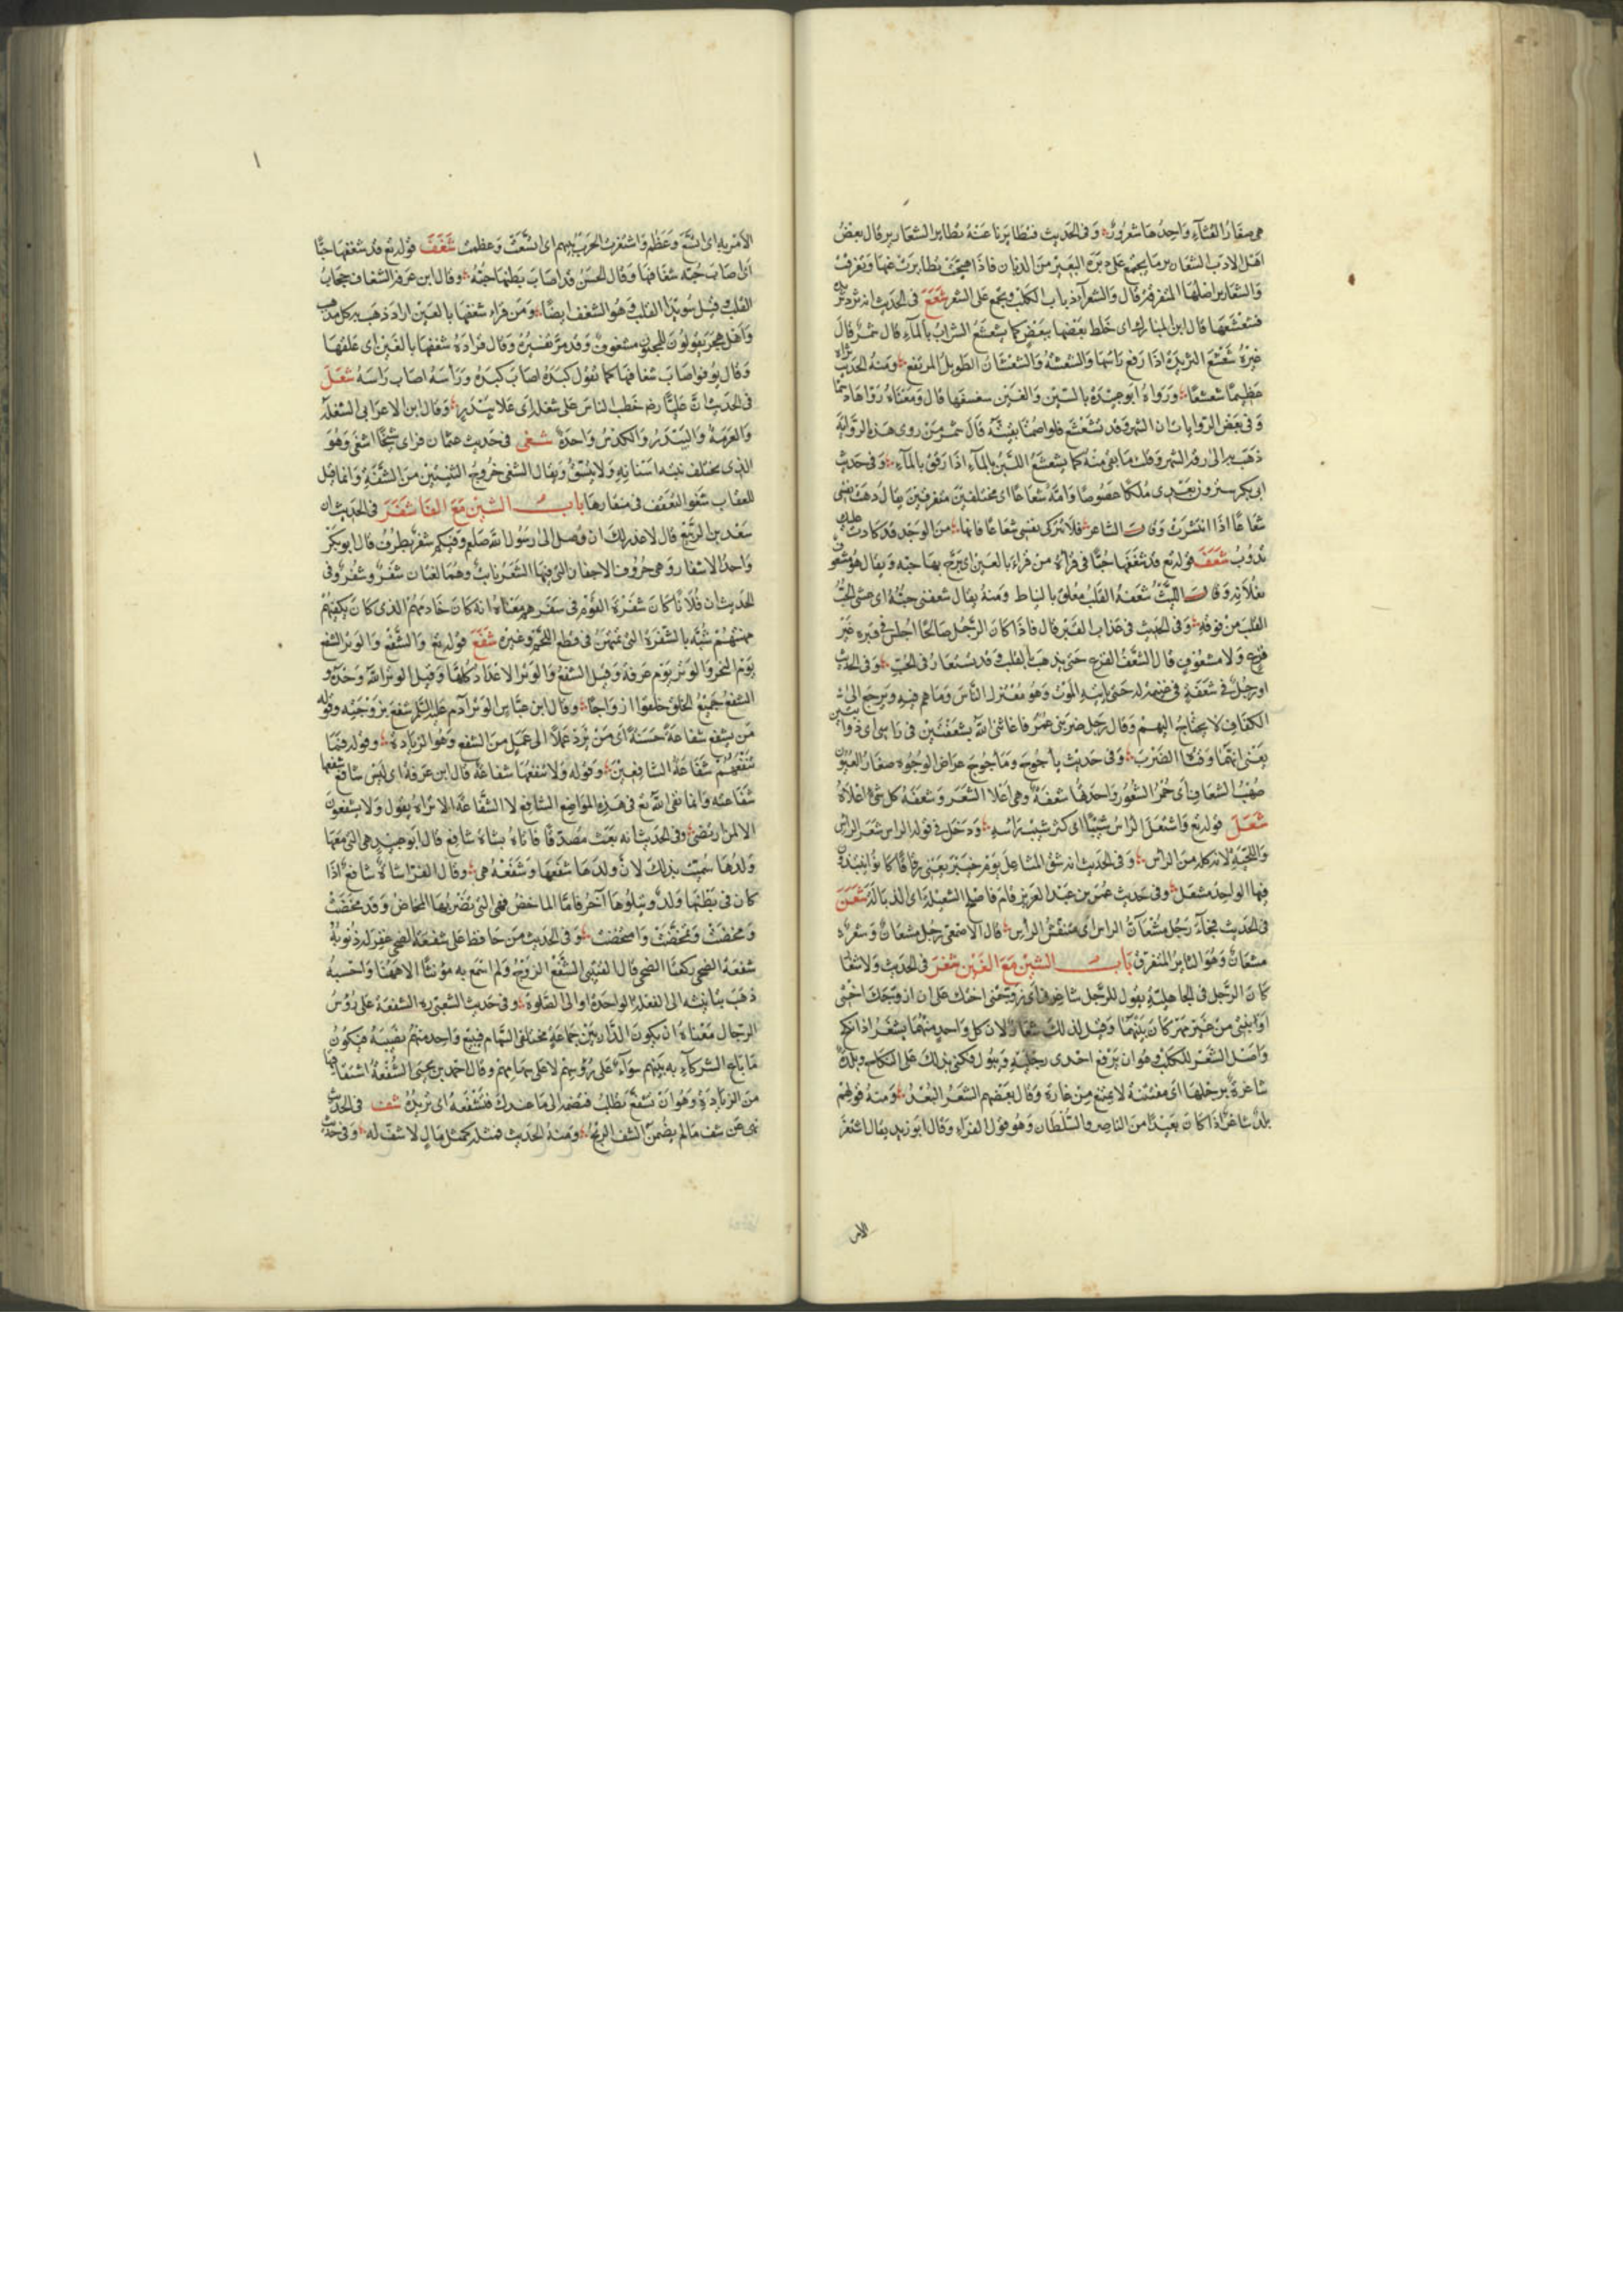 هى صغار القثاء واحدها شعرور وفى الحديث فتطايرنا عنه تطاير الشعارير قال بعض
اهل الادب الشعارير ما يجتمع على دبرة البعير من الذبان فاذا هيجت تطايرت عنها وتفرقت
والشعارير اصلها المتفرقة قال والشعرآء ذباب الكلب ويجمع على الشعر شعع فى الحديث انه ثرد ثريدة
فشعشعها قال ابن المبارك اى خلط بعضها ببعض كما يشعشع الشراب بالمآء قال شمر وقال
غيره شعشع الثريدة اذا رفع راسها والشعشعة والشعشعان الطويل المرتفع ومنه الحديث تراه
عظيما شعشعا ورواه ابو عبيدة بالسين والغين سغسغها قال ومعناه رواها دسما
وفى بعض الروايات ان الشهر قد تشعشع فلو صمنا بقيته قال شمر من روى هذه الرواية
ذهب به الى رقة الشهر وقلة ما بقى منه كما يشعشع اللبن بالمآء اذا رقق بالمآء وفى حديث
ابى بكر سترون بعدى ملكا عضوضا وامة شعاعا اى مختلفين متفرقين يقال ذهبت نفسى
شعاعا اذا انتشرت وقال الشاعر فلا تتركى نفسى شعاعا فانها من الوجد قد كادت عليك
تذوب شعف قوله تع قد شغفها حبا فى قرأة من قراء بالعين اى برح بها حبه ويقال هو مشعوف
بفلانة وقال الليث شعفة القلب معلق بالنياط ومنه يقال شعفنى حبه اى غشى الحب
القلب من فوقه وفى الحديث فى عذاب القبر قال فاذا كان الرجل صالحا اجلس فى قبره غير
فزع ولا مشعوف قال الشعف الفزع حتى يذهب بالقلب وقد يستعار فى الحب وفى الحديث
او رجل فى شعفة فى غنيمة له حتى ياتيه الموت وهو معتزل الناس وما هم فيه ويرجع الى
الكفاف لا يحتاج اليهم وقال رجل ضربنى عمر فاغاثنى الله بشعفتين فى راسى اى ذوابتين
يعنى انهما وقتا الضرب وفى حديث يأجوج ومأجوج عراض الوجوه صغار العيون
صهب الشعاف اى حمر الشعور واحدها شعفة وهى اعلا الشعر وشعفة كل شئ اعلاه
شعل قوله تع واشتعل الراس شيبا اى كثر شيب راسه ودخل فى قوله الراس شعر الراس
واللحية لانه كله من الراس وفى الحديث انه شق المشاعل يوم خيبر يعنى زقاقا كانوا ينبذون
فيها الواحد مشعل وفى حديث عمر بن عبد العزيز قام فاصلح الشعيلة اى الذبالة شعن
فى الحديث فجاء رجل مشعان الراس اى منتفش الراس قال الاصمعى رجل مشعان وشعره
مشعان وهو الثاير المتفرق باب الشين مع الغين شغر فى الحديث ولا شغار
كان الرجل فى الجاهلية يقول للرجل شاغرنى اى زوجنى اختك على ان ازوجك اختى
او ابنتى من غير مهر كان بينهما وقيل لذلك شغار لان كل واحد منهما يشغر اذا نكح
واصل الشغر للكلب وهو ان يرفع احدى رجليه ويبول فكنى بذلك على النكاح وبلدة
شاغرة برجلها اى مفتتنة لا يمتنع من غارة وقال بعضهم الشغر البعد ومنه قولهم
بلد شاغر اذا كان بعيدا من الناصر والسلطان وهو قول الفراء وقال ابو زيد يقال اشتغر
الامر
الامر به اى اتسع وعظم واشتغرت الحرب بينهم اى اتسعت وعظمت شغف قوله تع قد شغفها حبا
اى اصاب حبه شغافها وقال الحسن قد اصاب بطنها حبه وقال ابن عرفة الشغاف حجاب
القلب وقيل سويدا القلب وهو الشغف ايضا ومن قراء شعفها بالعين اراد ذهب به كل مذهب
واهل هجر يقولون للمجنون مشعوف وقد مر تفسيره وقال قرادة شغفها بالغين اى علقها
وقال يونس اصاب شغافها كما تقول كبده اصاب كبده ورأسه اصاب راسه شغل
فى الحديث ان عليا رضه خطب الناس على شغلة اى على بيدر وقال ابن الاعرابى الشغلة
والعرمة والبيدر والكدس واحدة شغى فى حديث عثمان فراى شيخا اشغى وهو
الذى يختلف نبتة اسنانه ولا يتسق ويقال الشغى خروج الثنيتين من الشفة وانما قيل
للعقاب شغوا لتعقف فى منقارها باب الشين مع الفا شفر فى الحديث ان
سعد بن الربيع قال لا عذر لك ان وصل الى رسول الله صلعم وفيكم شفر يطرف قال ابو بكر
واحد الاشفار وهى حروف الاجفان التى فيها الشعر نابت وهما لغتان شفر وشفر وفى
الحديث ان فلانا كان شفرة القوم فى سفرهم معناه انه كان خادمهم الذى كان يكفيهم
مهنتهم شبه بالشفرة التى تمتهن فى قطع اللحم وغيره شفع قوله تع والشفع والوتر الشفع
يوم النحر والوتر يوم عرفة وقيل الشفع والوتر الاعداد كلها وقيل الوتر الله وحده و
الشفع جميع الخلق خلقوا ازواجا وقال ابن عباس الوتر آدم عليه السلم شفع بزوجته وقوله
من يشفع شفاعة حسنة اى من يزد عملا الى عمل من الشفع وهو الزيادة وقوله فما
تنفعهم شفاعة الشافعين وقوله ولا تنفعها شفاعة قال ابن عرفة اى ليس شافع شفعها
شفاعته وانما نفى الله تع فى هذه المواضع الشافع لا الشفاعة الا تراه يقول ولا يشفعون
الا لمن ارتضى وفى الحديث انه بعث مصدقا فاتاه بشاة شافع قال ابو عبيد هى التى معها
ولدها سميت بذلك لان ولدها شفعها وشفعته هى وقال الفراء شاة شافع اذا
كان فى بطنها ولد ويتلوها آخر فاما الماخض فهى التى تضربها المخاض وقد مخضت
ومخضت وتمخضت وامتخضت وفى الحديث من حافظ على شفعة الضحى غفر له ذنوبه
شفعة الضحى ركعتا الضحى قال القتيبى الشفع الزوج ولم اسمع به مؤنثا الا ههنا واحسبه
ذهب بتانيثه الى الفعلة الواحدة او الى الصلوة وفى حديث الشعبى ره الشفعة على رؤس
الرجال معناه ان يكون الدار بين جماعة مختلفى السهام فيبيع واحد منهم نصيبه فيكون
ما باع الشركآء به بينهم سوآء على رؤسهم لا على سهامهم وقال احمد بن يحيى الشفعة اشتقاقها
من الزيادة وهو ان تشفع بطلب فتضمه الى ما عندك فتشفعه اى تزيده شف فى الحديث
نهى عن شف ما لم يضمن الشف الربح ومنه الحديث فمثله كمثل مال لا شف له وفى حديث